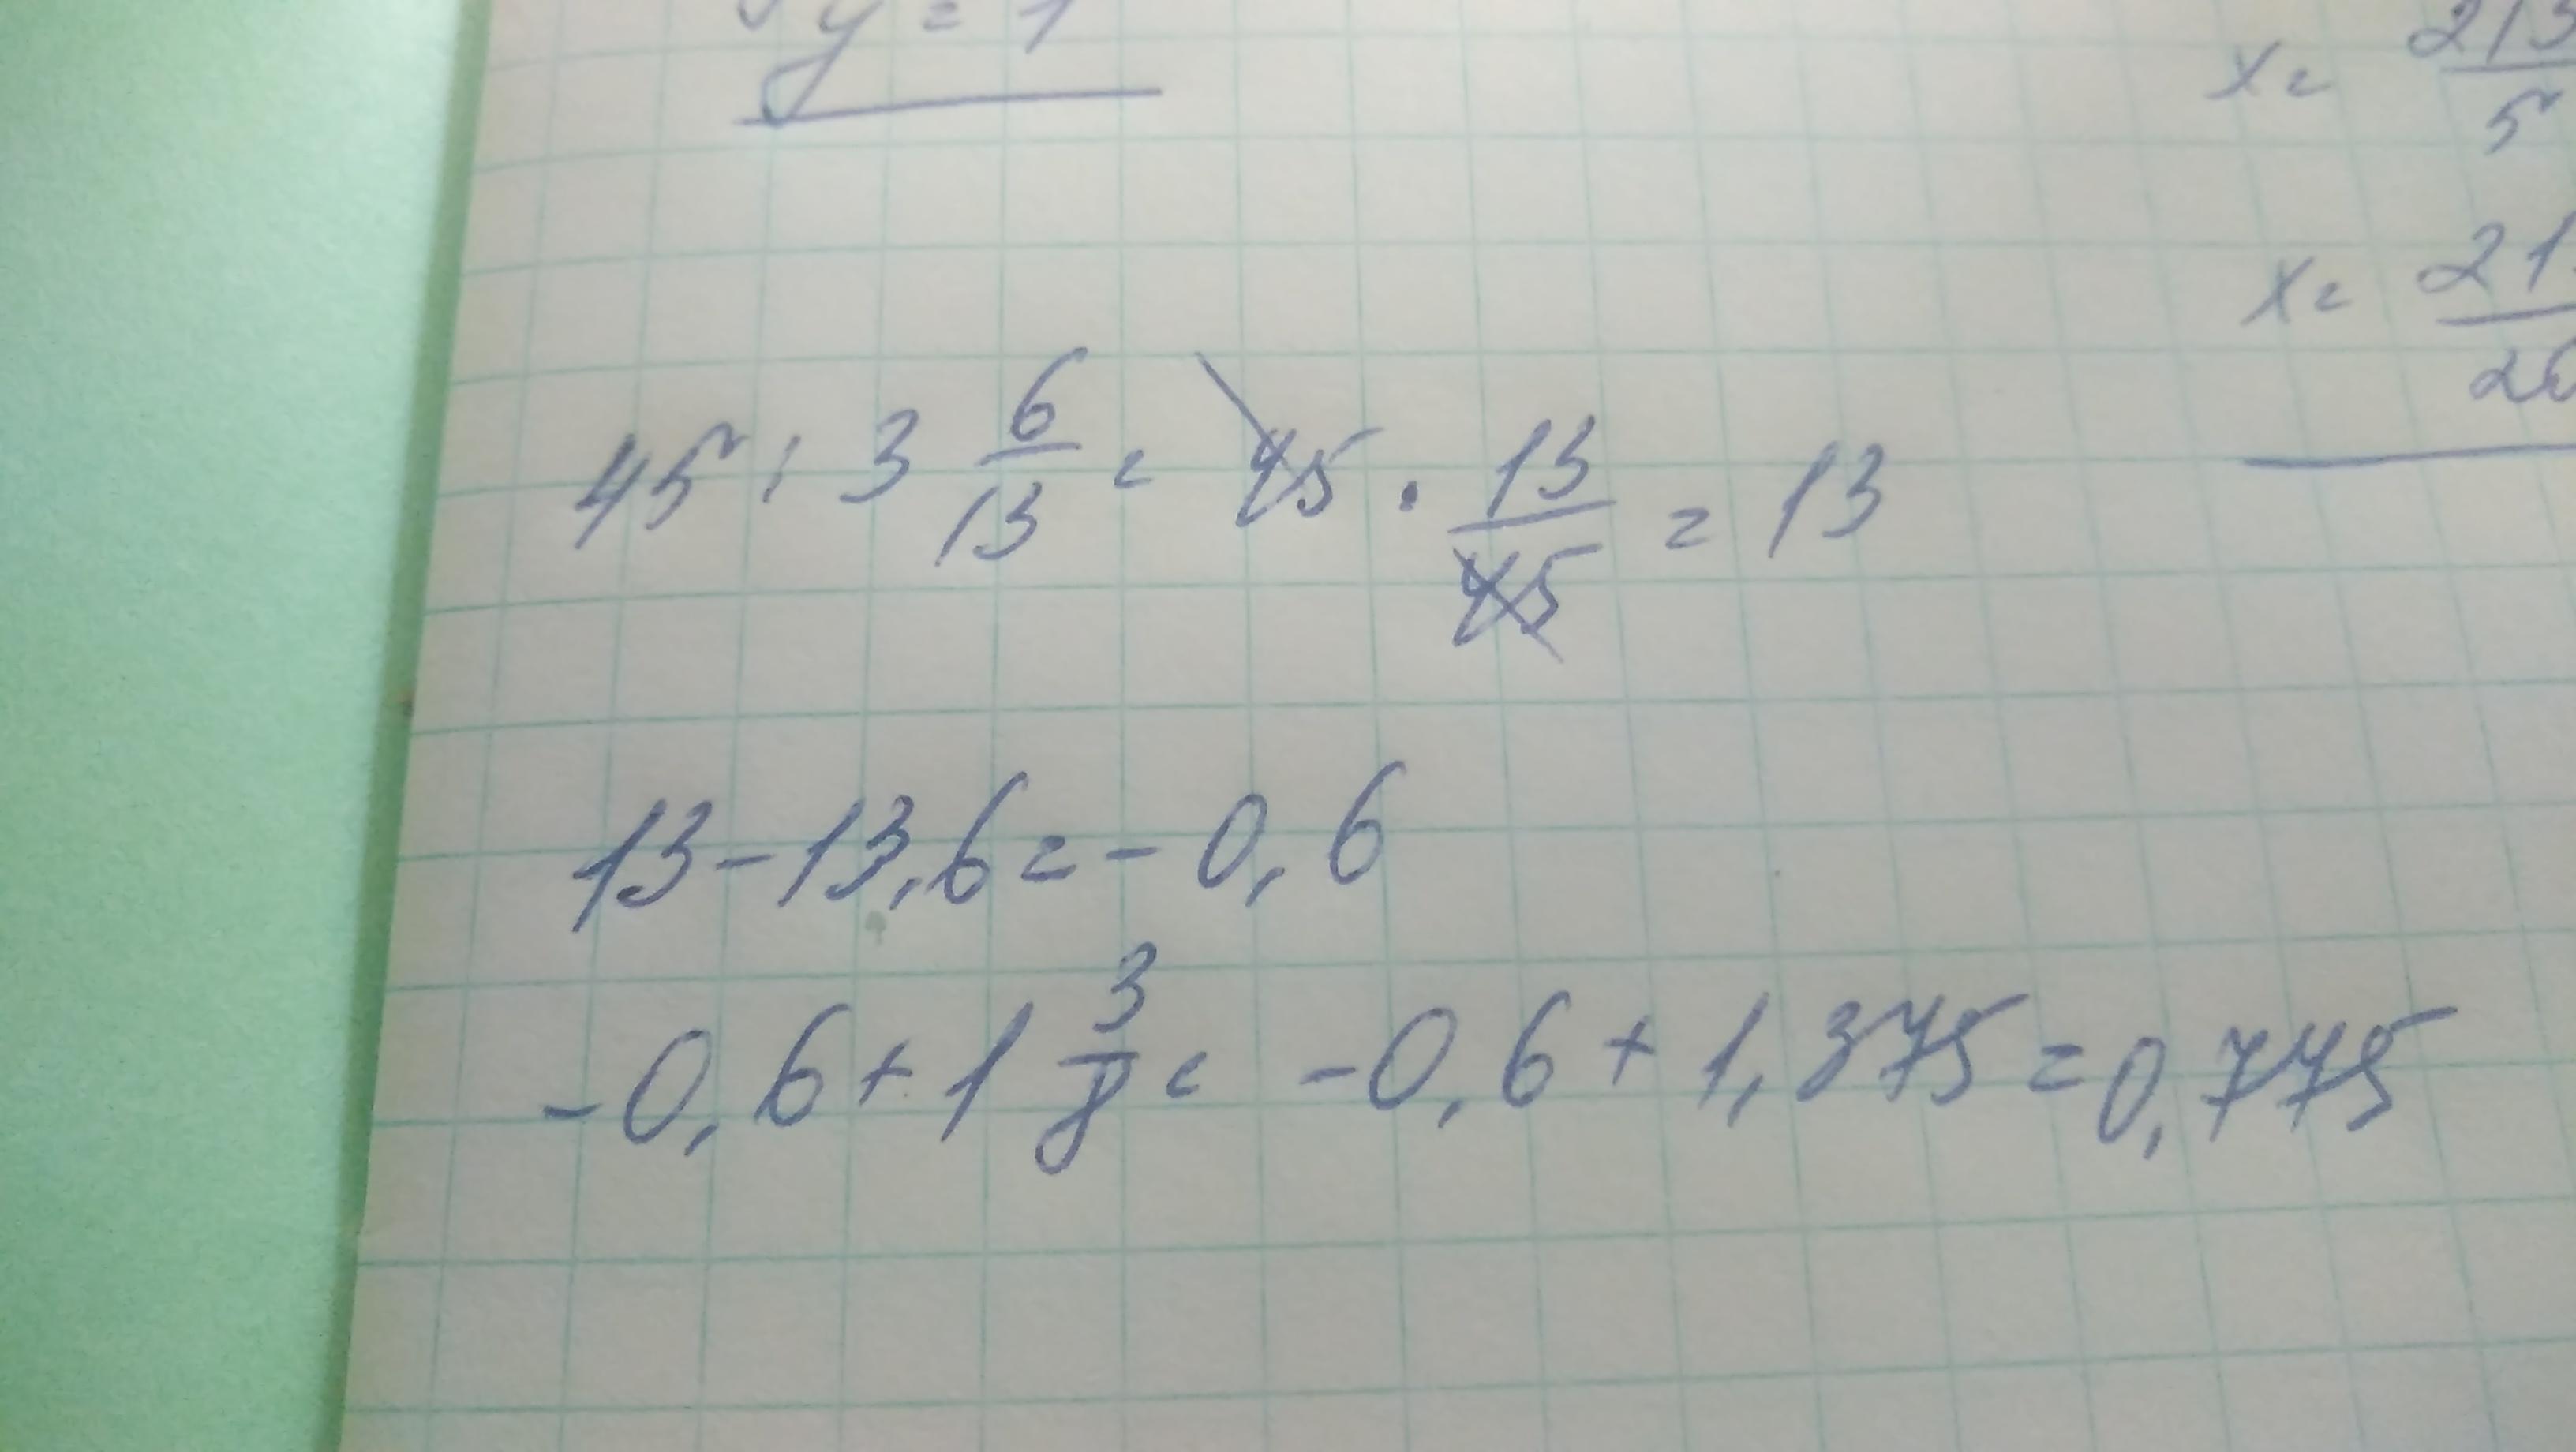 y = 1
x = 213/5
x = 21
45 : 3 6/13 = 45 · 13/45 = 13
13 - 13,6 = - 0,6
- 0,6 + 1 3/8 = - 0,6 + 1,375 = 0,775